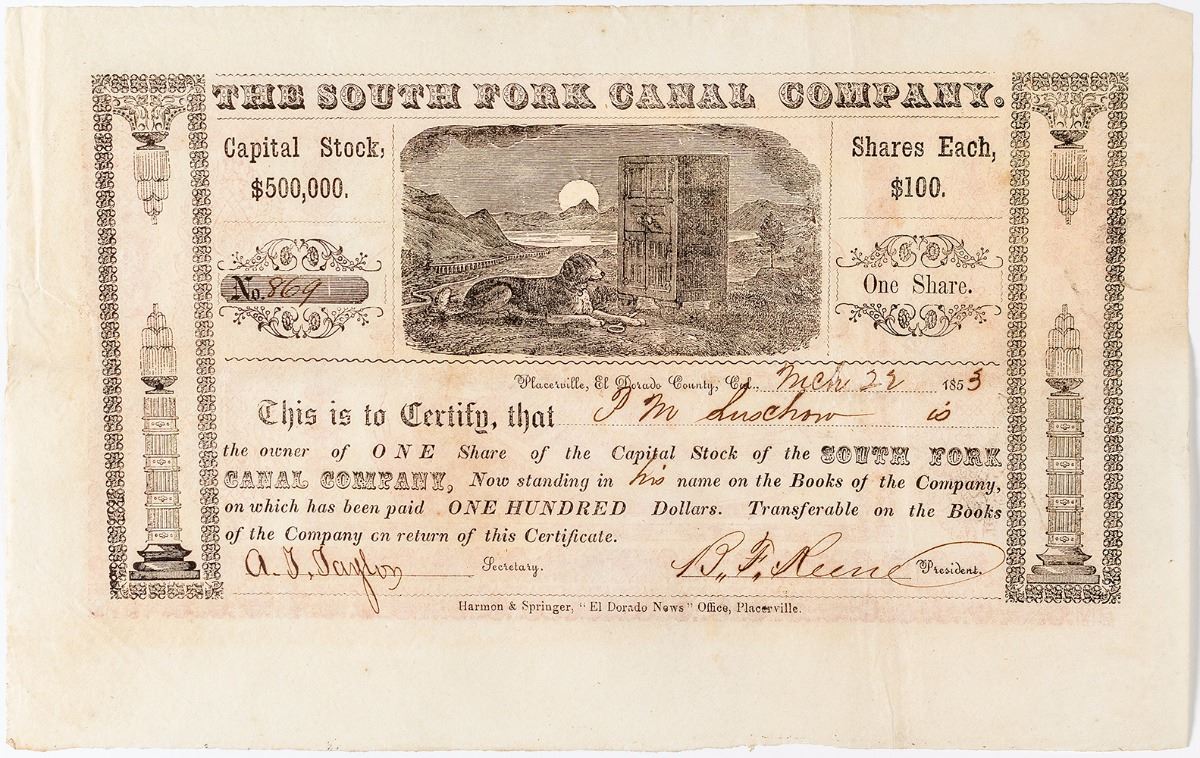 THE SOUTH FORK CANAL COMPANY.
Capital Stock,
$500,000.
Shares Each,
$100.
No. 869
One Share.
Placerville, El Dorado County, Ca. Mch 22 1853
This is to Certify, that P M Luschow is
the owner of ONE Share of the Capital Stock of the SOUTH FORK
CANAL COMPANY, Now standing in his name on the Books of the Company,
on which has been paid ONE HUNDRED Dollars. Transferable on the Books
of the Company on return of this Certificate.
A. T. Taylor Secretary. B. F. Keene President.
Harmon & Springer, "El Dorado News" Office, Placerville.